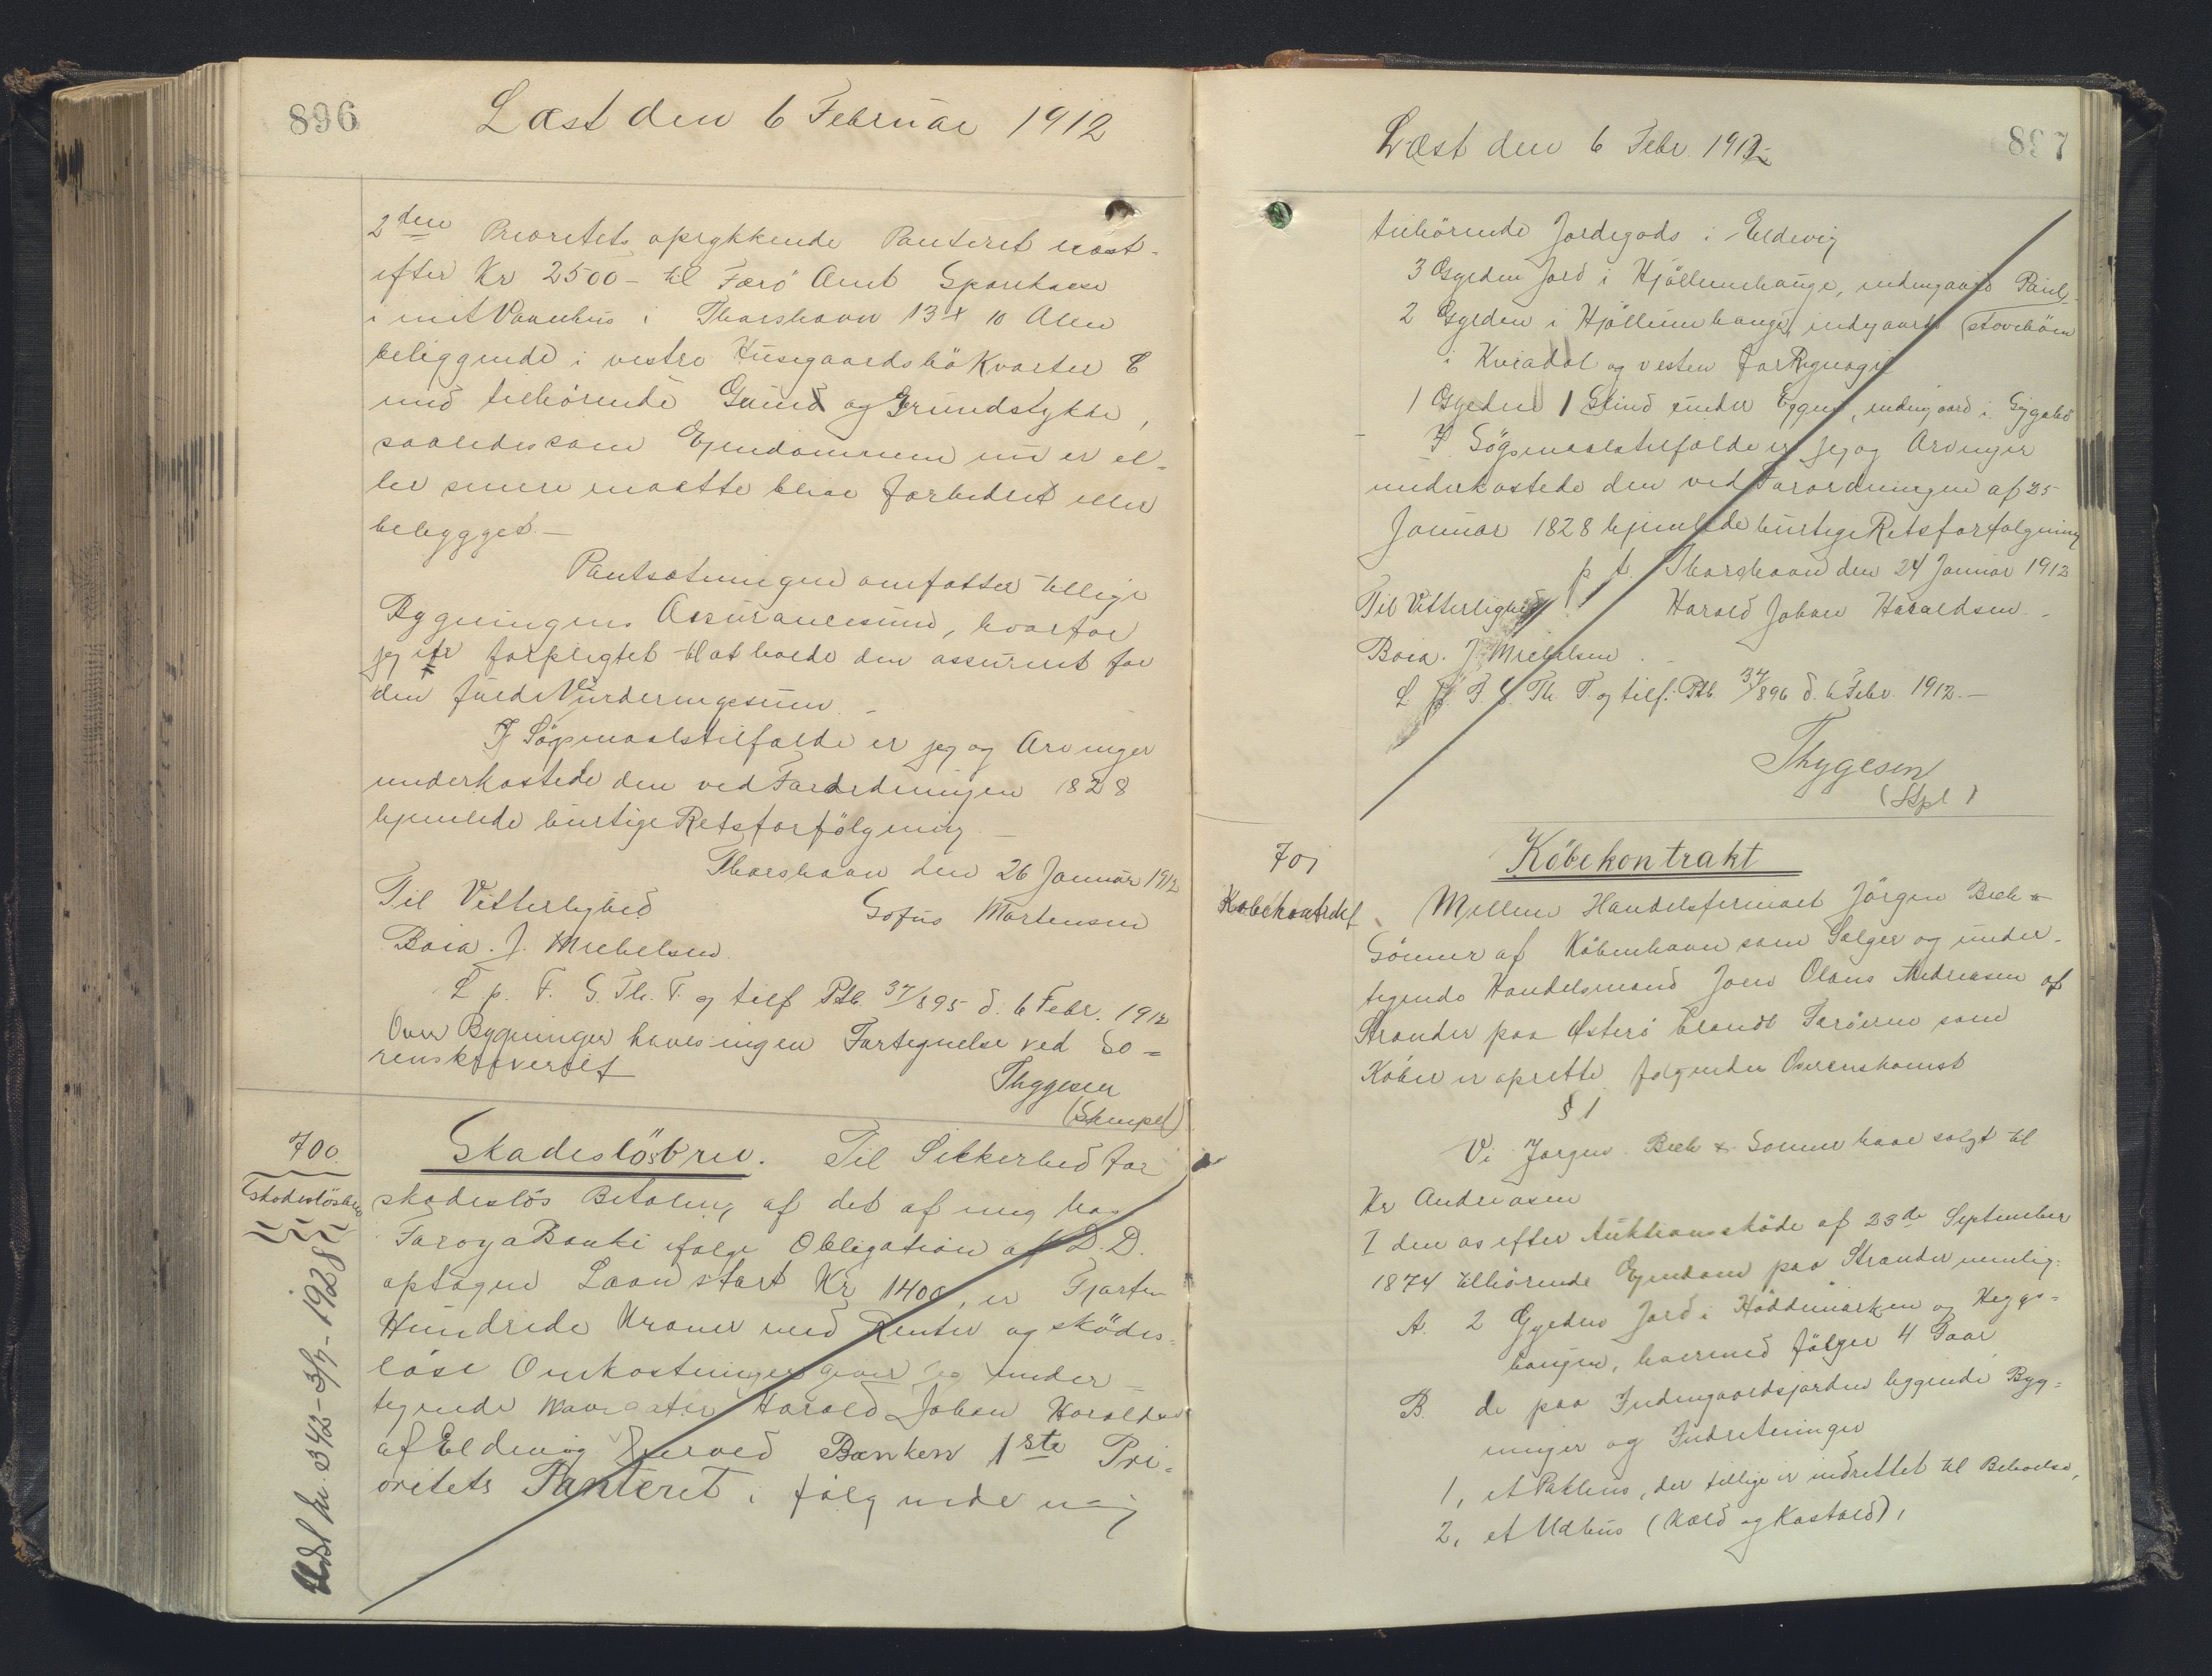 896
Læst den 6 Februar 1912
2den Prioritets oprykkende Panteret næst-
efter Kr 2500 - til Færö Amt Sparekasse
i mit Vaanhus i Thorshavn 13 x 10 Alen
beliggende i vestre Husegaardsbö Kvarter C
med tilhörende Grund og Grundstykke,
saaledes som Ejendommene nu er el-
ler senere maatte blive forbedret eller
bebygget. -
Pantsætningen omfatter tillige
Bygningens Assurancesum, hvorfor
jeg er forpligtet til at holde den assureret for
den fulde Vurderingssum. -
I Sögsmaalstilfælde er jeg og Arvinger
underkastede den ved Forordningen 1828
hjemlede hurtige Retsforfölgning. -
Thorshavn den 26 Januar 1912
Til Vitterlighed
Sofus Mortensen
Boia. J. Michelsen.
L p. F. S. Th. T. og tilf Ptb. 37/895 d. 6 Febr. 1912
Over Bygninger haves ingen Fortegnelse ved So=
renskriveriet
Thygesen
(Stempel)
700.
Skadeslösbrev
Skadeslösbrev. Til Sikkerhed for
skadeslös Betaling af det af mig hos
Føroya Banki ifølge Obligation af D.D.
optagne Laan stort Kr 1400, er Fjorten
Hundrede Kroner med Renter og skades=
löse Omkostninger giver jeg under-
tegnede Navigatör Harald Johan Haraldsen
af Eldevig herved Banken 1ste Pri=
oritets Panteret i følgende mig
Udsl. Lu. 342 - 3/7 - 1928
897
Læst den 6 Febr. 1912
tilhörende Jordegods i Eldevig
3 Gylden Jord i Hjöllumhauge, indengaard Pauls-
2 Gylden i Hjöllumhauge, indgaard (stoveböen
i Kviadal og vesten for Rygnagil
1 Gylden 1 Skind under Eggen, indengaard i Gygabö
I Sögsmaalstilfælde er jeg og Arvinger
underkastede den ved Forordningen af 25
Januar 1828 hjemlede hurtige Retsforfølgning
p. t. Thorshavn den 24 Januar 1912
Til Vitterlighed
Harald Johan Haraldsen. -
Boia. J. Michelsen.
L p. F. S. Th. T. og tilf. Ptb. 37/896 d. 6 Febr. 1912. -
Thygesen
(Stpl)
701
Köbekontrakt
Köbekontrakt
Mellem Handelsfirmaet Jörgen Bech &
Sönner af Köbenhavn som Sælger og under-
tegnede Handelsmand Joen Olaus Andreasen af
Strander paa Østerö blandt Færöerne som
Köber er oprettet følgende Overenskomst
§ 1
Vi Jørgen Bech & Sønner have solgt til
Hr Andreasen
I den os efter Auktionsskøde af 23de September
1874 tilhörende Ejendom paa Strander nemlig:
A. 2 Gylden Jord i Höddemarken og Heggs=
haugen, hvormed følger 4 Faar
B. de paa Indengaardsjorden liggende Byg=
ninger og Indretninger
1, et Pakhus, der tillige er indrettet til Beboelse,
2, et Udhus (Kæld og Kostald),